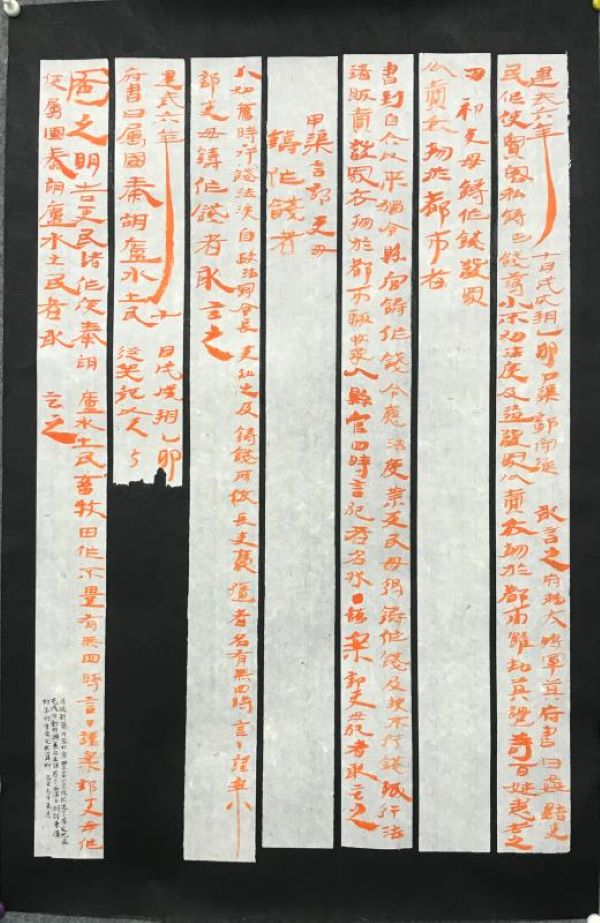 建武六年 七月戊戌朔乙卯甲渠鄣守候 敢言之府移大將軍莫府書曰姦黠吏
民作使賓客私鑄作錢薄小不如法度及盜發冢公賣衣物於都市雖知莫譴苛百姓患苦之
吏毋鑄作錢發冢
賣衣物於都市者
書到自今以來獨令縣官鑄作錢令應法度禁吏民毋得鑄作錢及挾不行錢輒行法
諸販賣發冢衣物於都市輒收沒入縣官四時言犯者名狀●謹案部吏毋犯者敢言之
甲渠言部吏毋
鑄作錢者
以如舊時行錢法漢自政法罰令長吏知之及鑄錢所依長吏豪彊者名有無四時言●謹案
部吏毋鑄作錢者敢言之
建武六年 七月戊戌朔乙卯
府書曰屬國秦胡盧水士民 從兵起以
匿之明告吏民諸作使秦胡 盧水士民畜牧田作不遣有無四時言●謹案部吏毋作
使屬國秦胡盧水士民者敢 言之